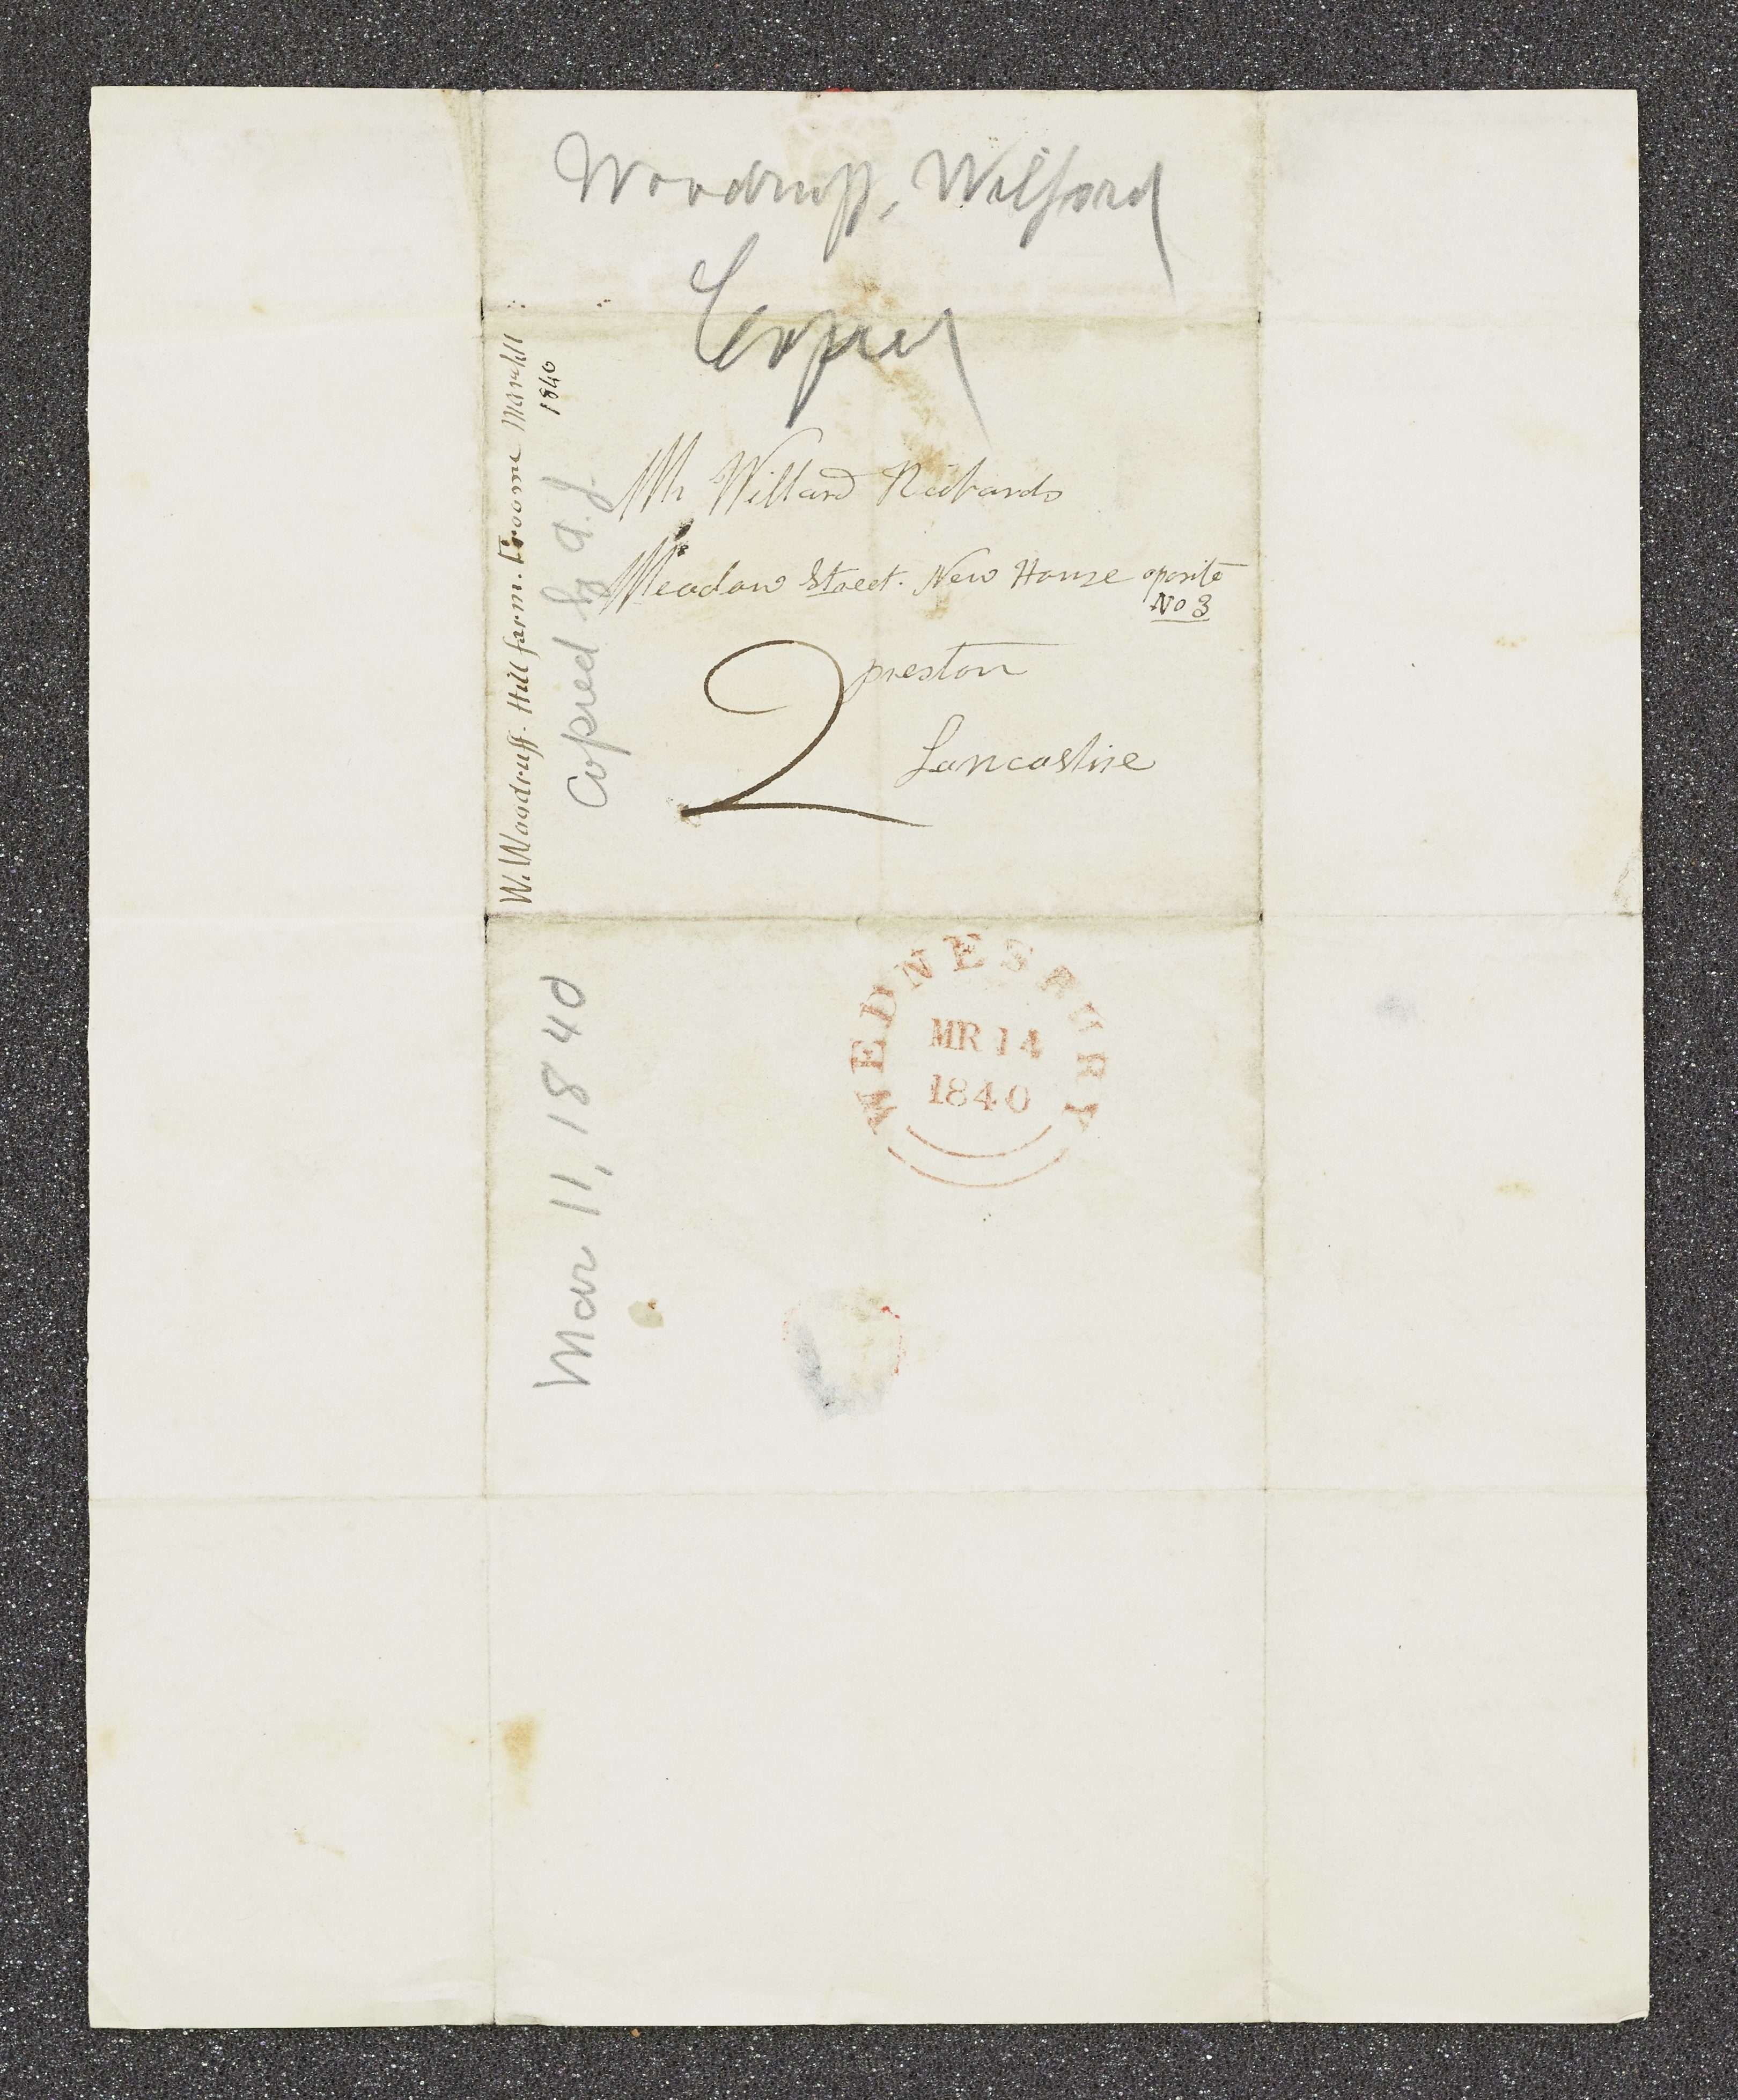 Woodruff, Wilford
Copied
W. Woodruff. Hill farm. Froome March 11
1840
Copied by A. J.
Mr Willard Richards
Meadow Street. New House oposite
No 3
2
preston
Lancashire
WEDNESBURY
MR 14
1840
Mar 11, 1840